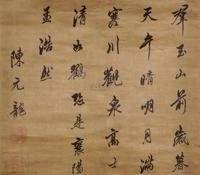 群玉山前歲暮
天乍晴明月滿
寒川觀泉高士
清如鶴是襄陽
孟浩然
陳元龍